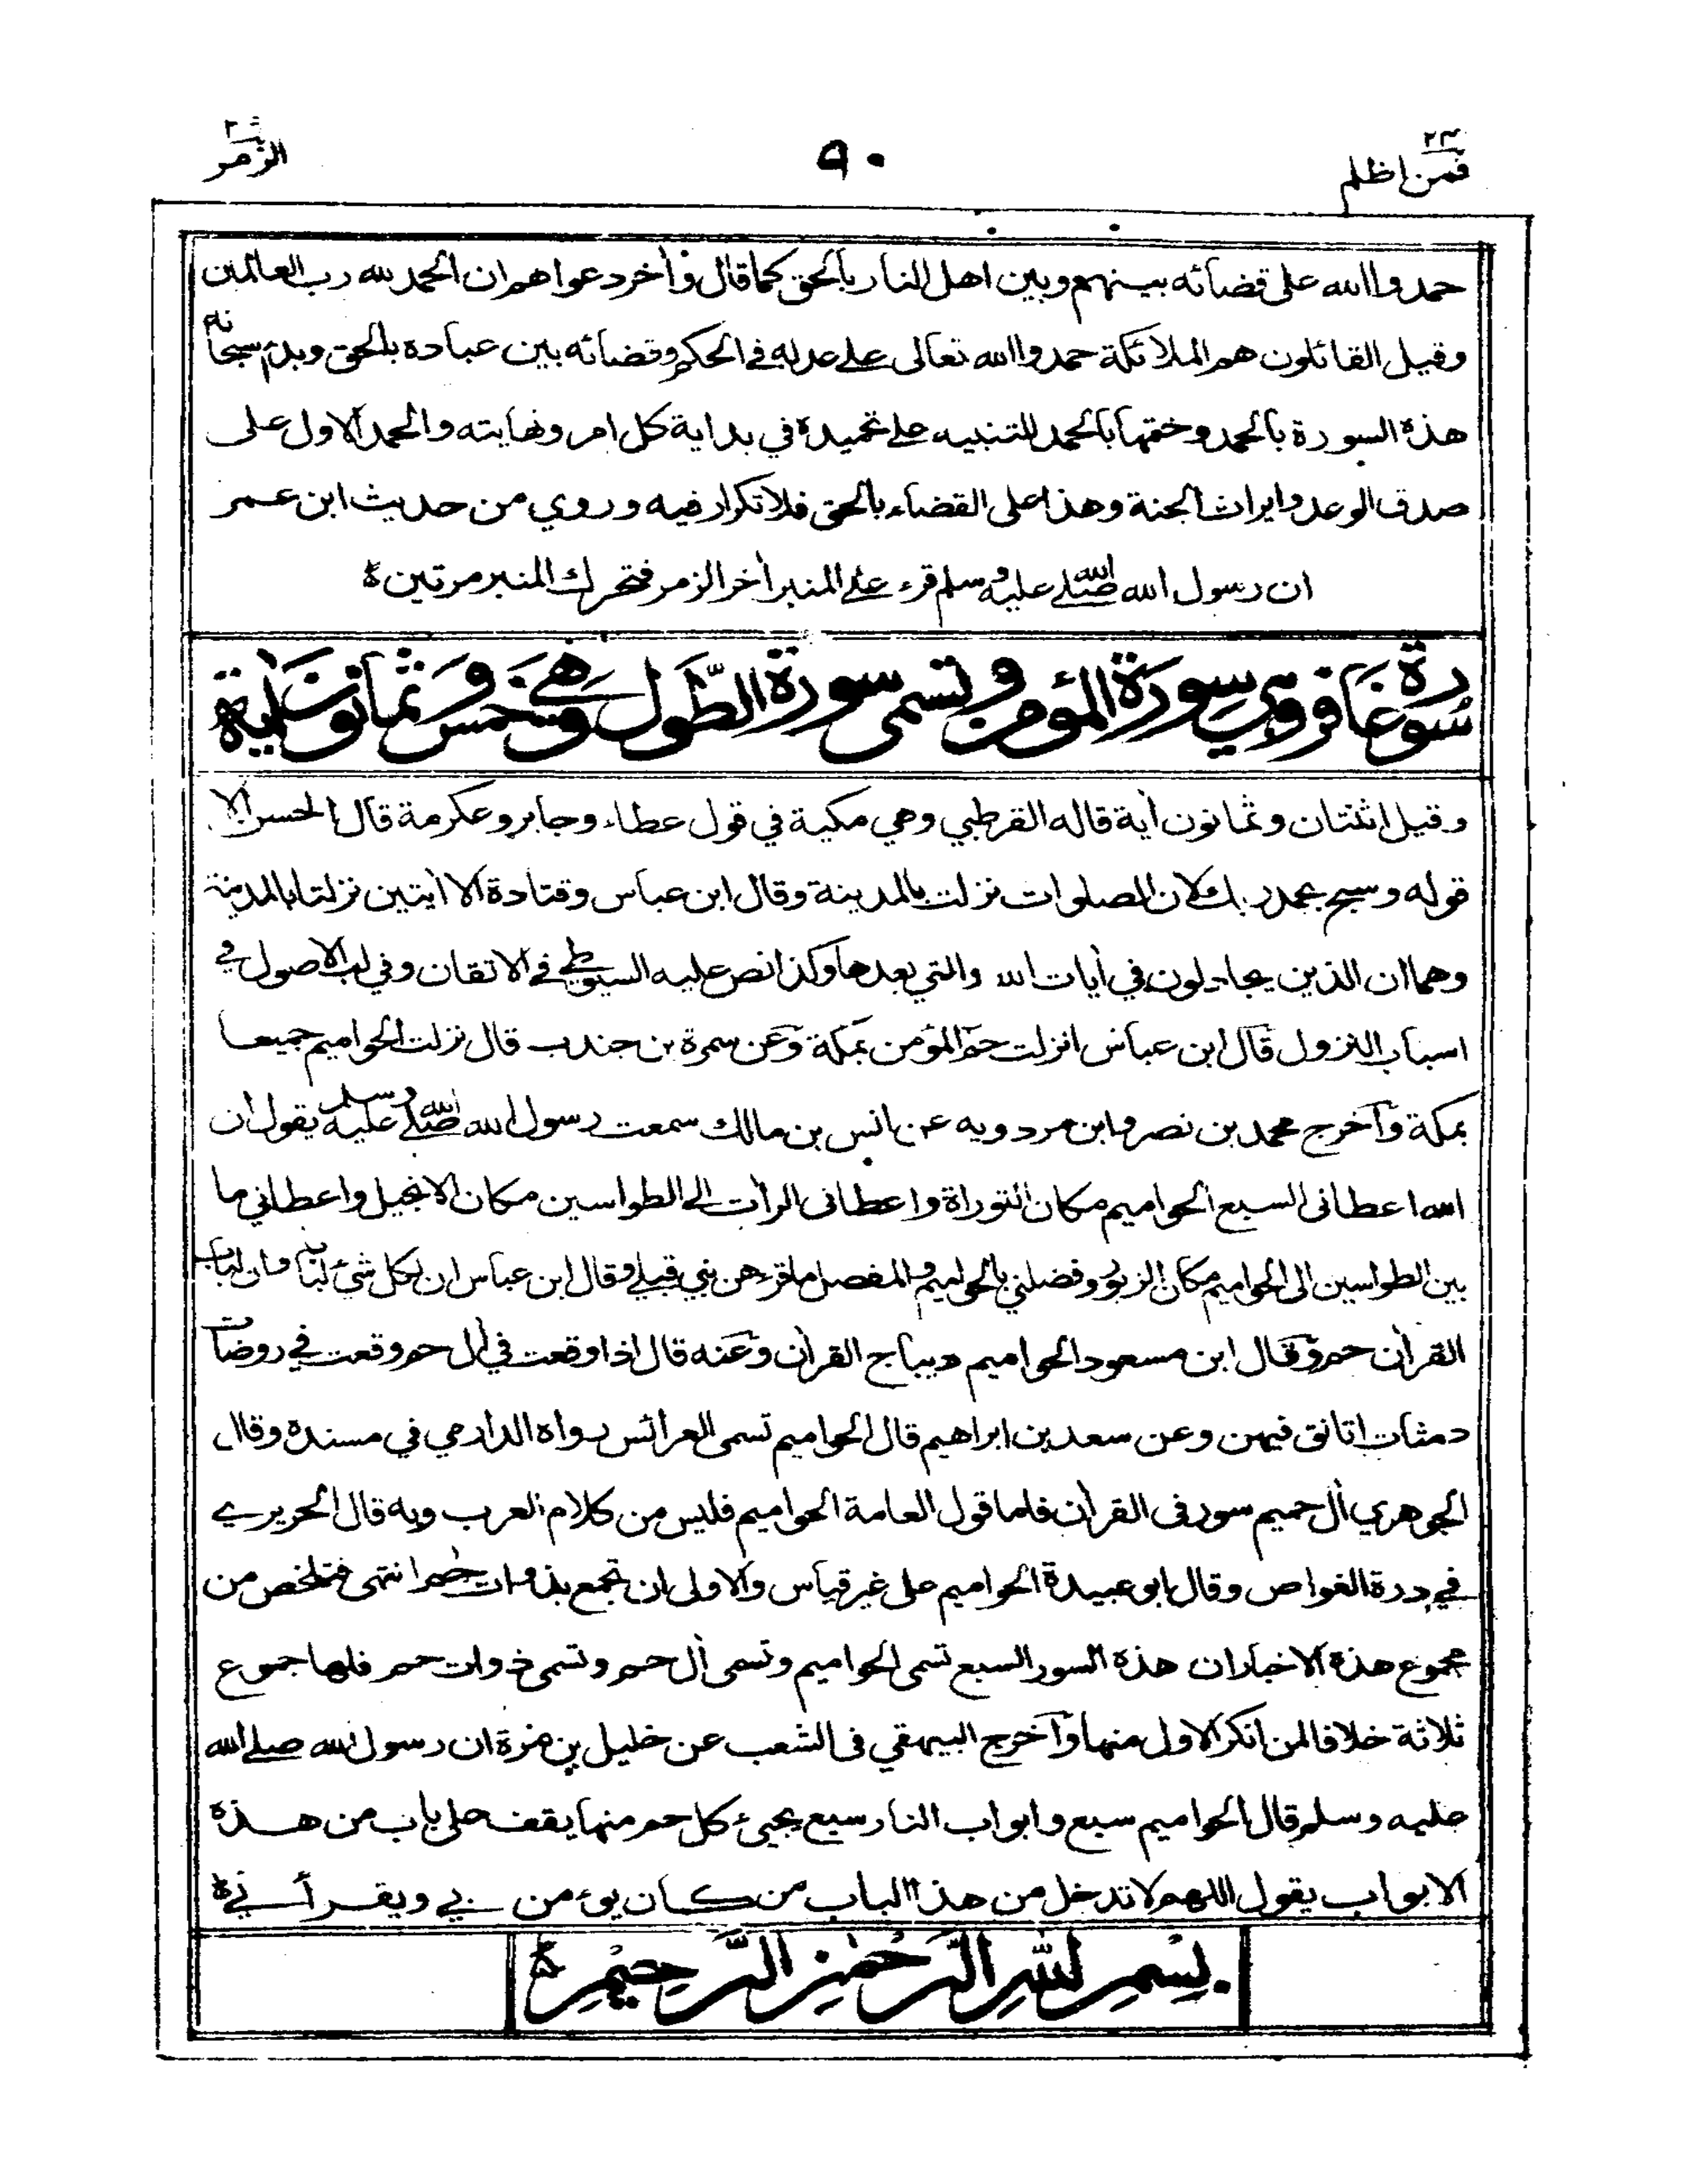 فمن اظلم ٢٤
٩٠
الزمر
حمدوا الله على قضائه بينهم وبين اهل النار بالحق كما قال وأخر دعواهم ان الحمد لله رب العالمين
وقيل القائلون هم الملائكة حمدوا الله تعالى على عدله في الحكم وقضائه بين عباده بالحق وبدء سبحانه
هذه السورة بالحمد وختمها بالحمد للتنبيه على تحميده في بداية كل امر ونهايته والحمد الاول على
صدق الوعد وايراث الجنة وهذا على القضاء بالحق فلا تكرار فيه وروي من حديث ابن عمر
ان رسول الله صلى الله عليه وسلم قرء على المنبر أخر الزمر فتحرك المنبر مرتين
سورة غافر وهي سورة المؤمن وتسمى سورة الطول وهي خمس وثمانون أية
وقيل اثنتان وثمانون أية قاله القرطبي وهي مكية في قول عطاء وجابر وعكرمة قال الحسن الا
قوله وسبح بحمد ربك لان الصلوات نزلت بالمدينة وقال ابن عباس وقتادة الا ايتين نزلتا بالمدينة
وهما ان الذين يجادلون في أيات الله والتي بعدها وكذا نص عليه السيوطي في الاتقان وفي لب الاصول في
اسباب النزول قال ابن عباس انزلت حم المؤمن بمكة وعن سمرة بن جندب قال نزلت الحواميم جميعا
بمكة وأخرج محمد بن نصر وابن مردويه عن انس بن مالك سمعت رسول الله صلى الله عليه وسلم يقول ان
الله اعطانى السبع الحواميم مكان التوراة واعطانى الرأت الى الطواسين مكان الانجيل واعطاني ما
بين الطواسين الى الحواميم مكان الزبور وفضلني بالحواميم والمفصل ما قرءهن نبي قبلي وقال ابن عباس ان لكل شيء لبابا وان لباب
القرأن حم وقال ابن مسعود الحواميم ديباج القرأن وعنه قال اذا وقعت في أل حم وقعت في روضات
دمثات اتانق فيهن وعن سعد بن ابراهيم قال الحواميم تسمى العرائس رواه الدارمي في مسنده وقال
الجوهري أل حميم سور فى القرأن فاما قول العامة الحواميم فليس من كلام العرب وبه قال الحريري
في درة الغواص وقال ابو عبيدة الحواميم على غير قياس والاولى ان تجمع بذوات حم انتهى فتلخص من
مجموع هذه الاخبار ان هذه السور السبع تسمى الحواميم وتسمى أل حم وتسمى ذوات حم فلها جموع
ثلاثة خلافا لمن انكر الاول منها وأخرج البيهقي فى الشعب عن خليل بن مرة ان رسول الله صلى الله
عليه وسلم قال الحواميم سبع وابواب النار سبع يجيء كل حم منها يقف على باب من هذه
الابواب يقول اللهم لا تدخل من هذا الباب من كان يؤمن بي ويقرأني
بسم الله الرحمن الرحيم